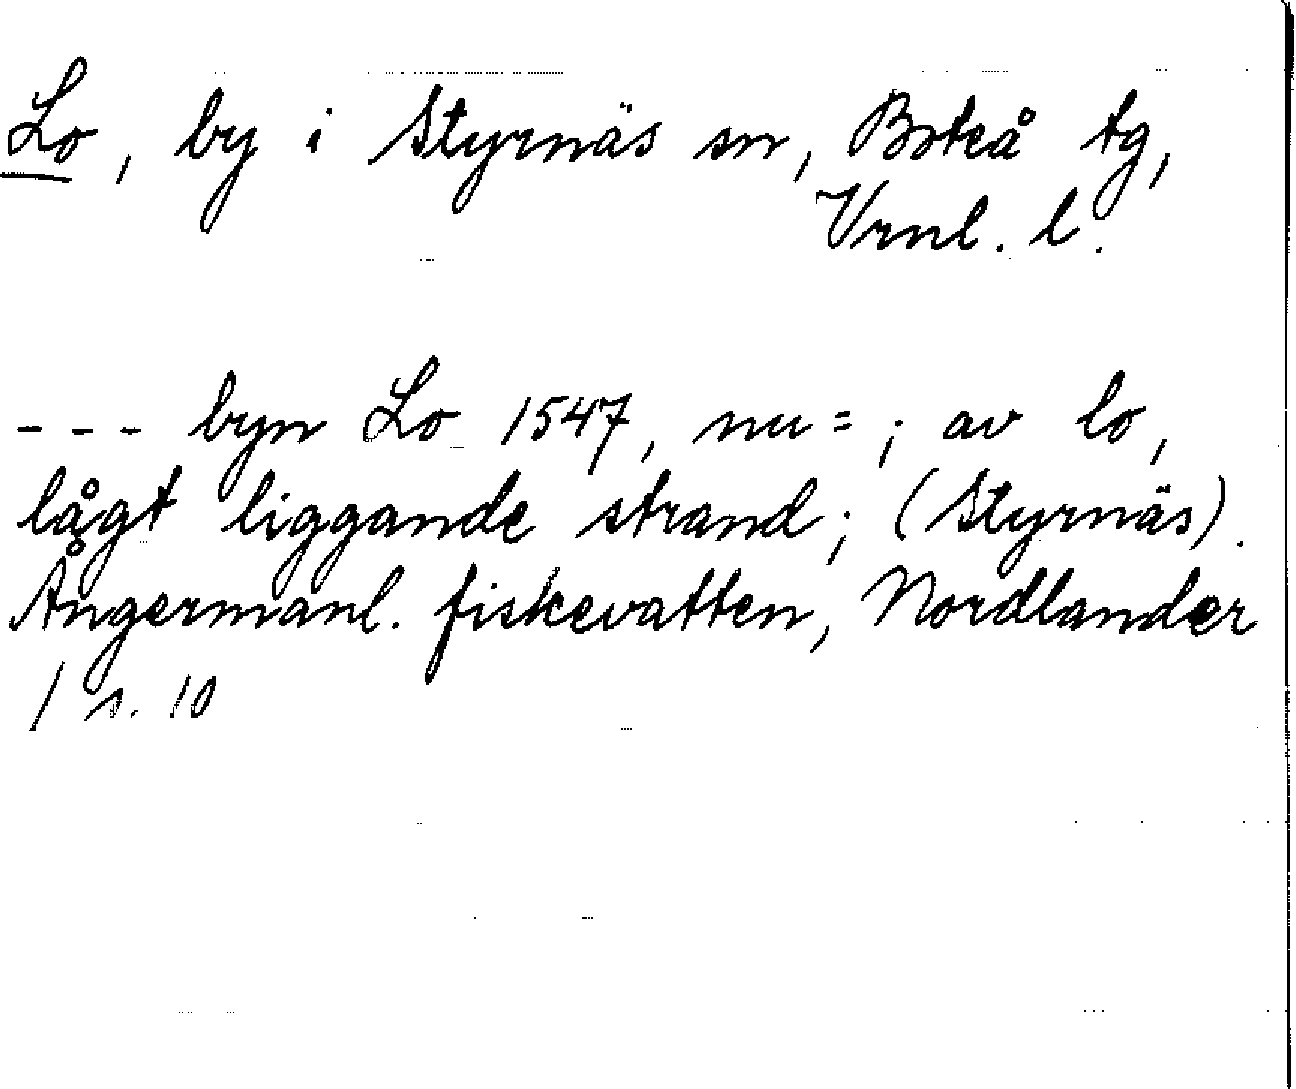 Lo, by i Styrnäs sn, Boteå tg,
Vrnl. l.
--- byn Lo 1547, nu = ; av lo,
lågt liggande strand; (Styrnäs).
Ångermanl. fiskevatten, Nordlander
1 s. 10